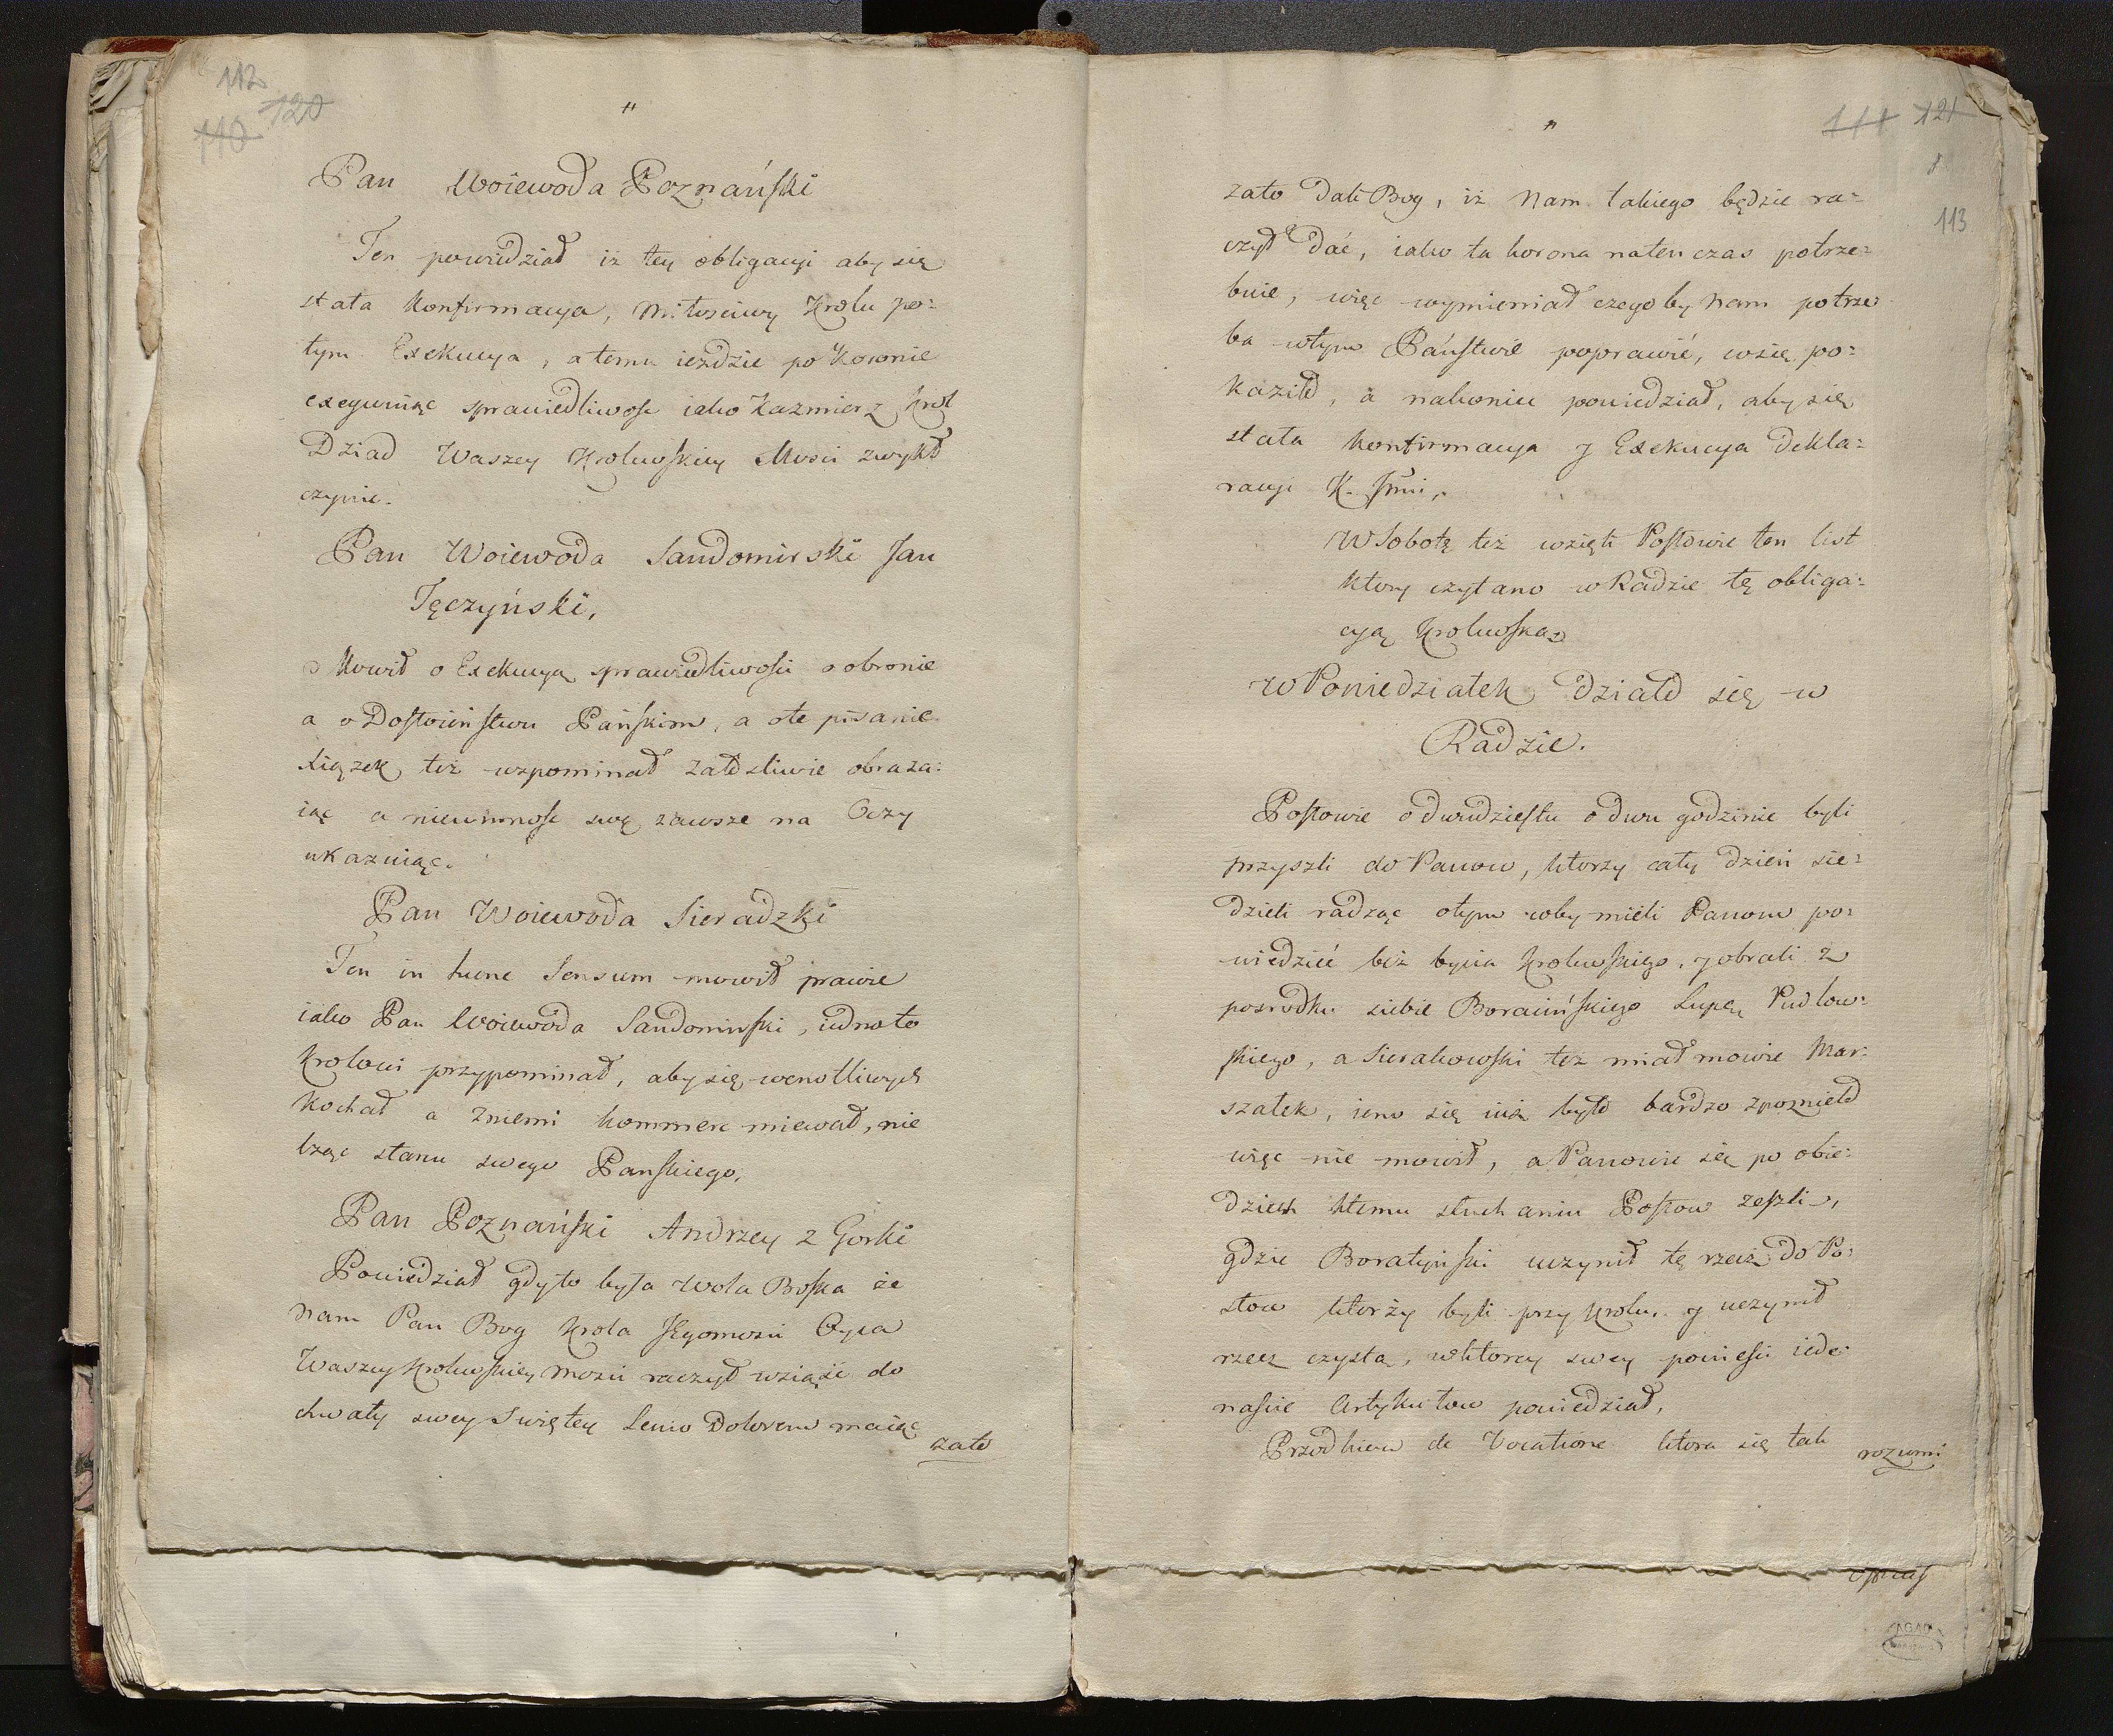 112
120
110
"
Pan Woiewoda Poznański
Ten powiedział iż tey obligacyi aby się
stała Konfirmacya, Miłosciwy Krolu po=
tym Exekucya, a temu ieździe po Koronie
exequuiąc sprawiedliwość iako Kazmierz Krol
Dziad Waszey Krolewskiey Mości zwykł
czynić.
Pan Woiewoda Sandomirski Jan
Tęczyński,
Mowił o Exekucyą sprawiedliwości o obronie
a o Dostoieństwu Pańskim, a ote pisanie
Xiążek też wspominał załosliwie obraza=
iąc a niewinność swę zawsze na Oczy
ukazuiąc.
Pan Woiewoda Sieradzki
Ten in hunc Sensum mowił prawie
iako Pan Woiewoda Sandomirski, iedno to
Krolowi przypominał, aby się wcnotliwych
Kochał a zniemi kommerc miewał, nie
lżąc stanu swego Panskiego,
Pan Poznański Andrzey z Gorki
Powiedział gdyto była Wola Boska że
nam Pan Bog Krola Jegomości Oyca
Waszey Krolewskiey Mości raczył wziąść do
chwały swey Swiętey Senio Dolorem maiąc
zato
"
111 121
113
zato Dali Bog, iż Nam takiego będzie ra=
czył dać, iako ta korona naten czas potrze=
buie, więc wymieniał czegoby Nam potrze
ba wtym Państwie poprawić, wsię po=
kaziło, a nakoniec powiedział, aby się
stała Konfirmacya y Exekucya Dekla=
racyi K. Jmci,
W Sobotę też wzięli Posłowie ten list
ktory czytano w Radzie tę obliga=
cyą Krolewską
W Poniedziałek Działo się w
Radzie.
Posłowie o dwudziestu o dwu godzinie byli
przyszli do Panow, ktorzy cały dzień sie=
dzieli radząc otym coby mieli Panom po=
wiedzieć beż bycia Krolewskiego, y obrali z
posrodku siebie Boracińskiego Lupę, Pudlow=
skiego, a Sierakowski też miał mowić Mar=
szałek, ieno się iuż było bardzo zpozniło
więc nie mowił, a Panowie się po obie=
dziech ktemu słuchaniu Posłow zeszli,
gdzie Boratyński uczynił tę rzecz do Po=
słow ktorży byli przy Krolu, y uczynił
rzecz czystą, wktorey swey powieści iede=
naście Artykułow powiedział,
Przodkiem de Vocatione ktora się tak
rozumi
AGAD